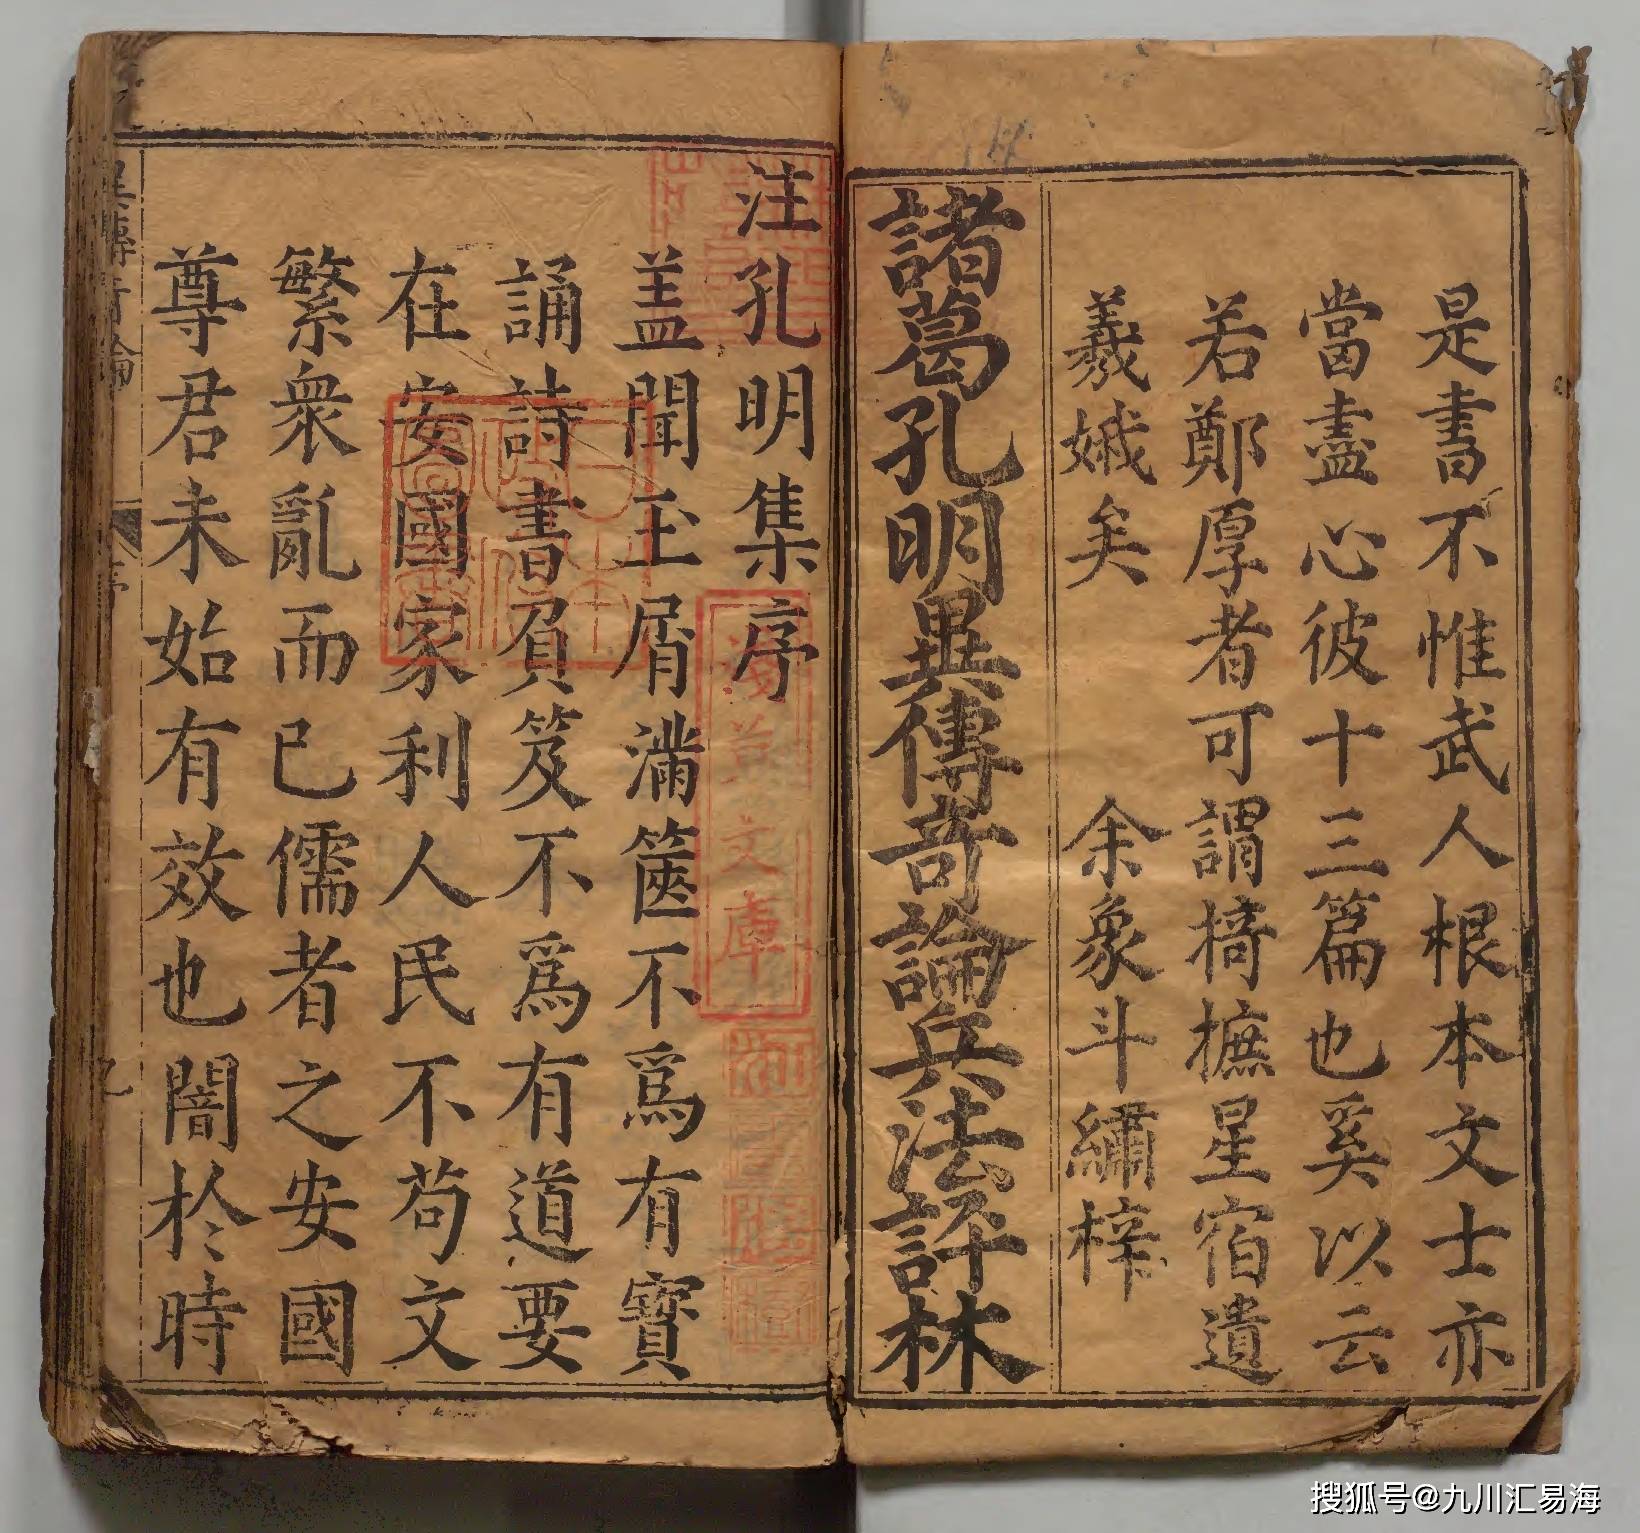 是書不惟武人根本文士亦
當盡心彼十三篇也奚以云
若鄭厚者可謂掎摭星宿遺
羲娥矣 余象斗繡梓
諸葛孔明異傳奇論兵法評林
注孔明集序
盖聞玉屑滿篋不爲有寳
誦詩書負笈不爲有道要
在安國家利人民不苟文
繁衆亂而已儒者之安國
尊君未始有效也闇於時
文庫
搜狐号@九川汇易海